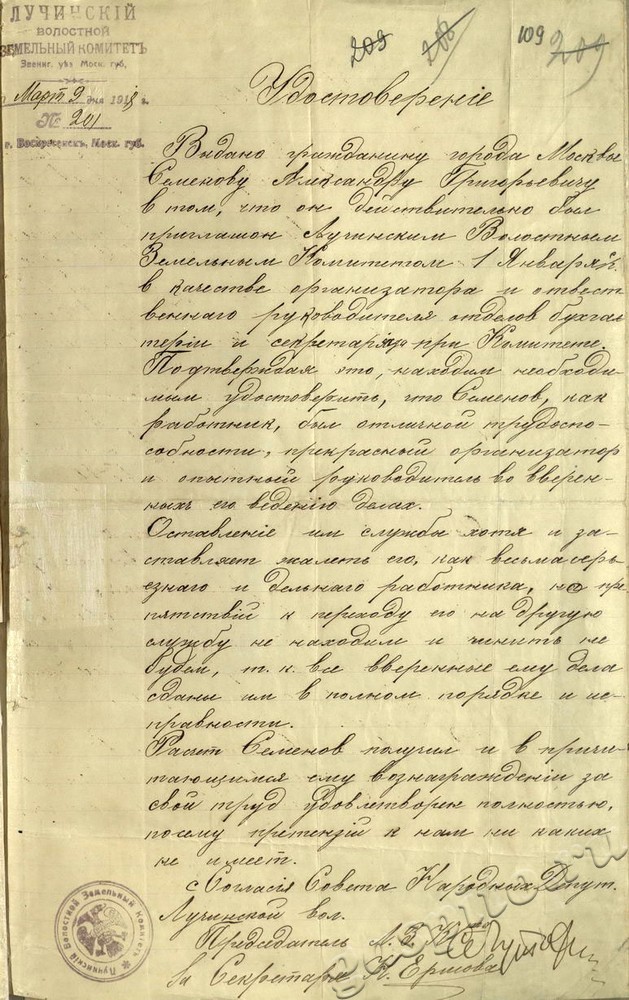 ЛУЧИНСКІЙ
ВОЛОСТНОЙ
ЗЕМЕЛЬНЫЙ КОМИТЕТЪ
Звениг. уѣз. Моск. губ.
Март 9 дня 1918 г.
№ 201
г. Воскресенскъ, Моск. губ.
209 208 109 209
Удостоверенiе
Выдано гражданину города Москвы
Семенову Александру Григорьевичу
в том, что он действительно был
приглашон Лучинским Волостным
Земельным Комитетом 1 Января
в качестве организатора и ответст
веннаго руководителя отделов бухгал
терiи и секретарiата при Комитете.
Подтверждая это, находим необходи-
мым удостоверить, что Семенов, как
работник, был отличной трудоспо-
собности, прекрасный организатор
и опытный руководитель во вверен-
ных его ведению делах.
Оставленiе им службы хотя и за-
ставляет жалеть его, как весьма серь-
езнаго и дельнаго работника, но пре
пятствiй к переходу его на другую
службу не находим и чинить не
будем, т. к. все вверенные ему дела
сданы им в полном порядке и ис-
правности.
Расчет Семенов получил и в причи-
тающимся ему вознагражденiи за
свой труд удовлетворен полностью,
посему претензiй к нам ни каких
не имеет.
с Согласiя Совета Народных Депут.
Лучинской вол.
Председатель
За Секретаря К. Ершова
Лучинскій Волостной Земельный Комитетъ